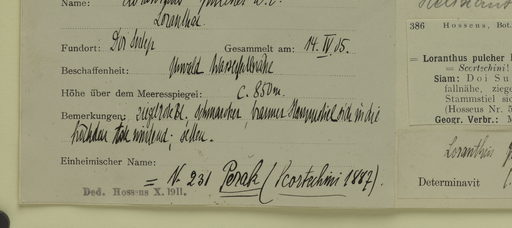 Name: Loranthus pulcher D.C.
Loranthac
Fundort: Doi Sutep Gesammelt am: 14. IV. 05.
Beschaffenheit: Urwald Wasserfallnähe
Höhe über der Meeresspiegel: c. 850m.
Bemerkungen: ziegelrote Bl., Schmarotzer, brauner Stammstiel sich in die
; selten.
Einheimischer Name:
= N. 231 Perak (Scortechini 1887).
Ded. Hosseus X. 1911.
386 Hosseus, Bot.
= Loranthus pulcher
= Scortechini!
Siam: Doi Su
fallnähe, ziege
Stammstiel si
(Hosseus Nr. 5
Geogr. Verbr.: M
Loranthus
Determinavit